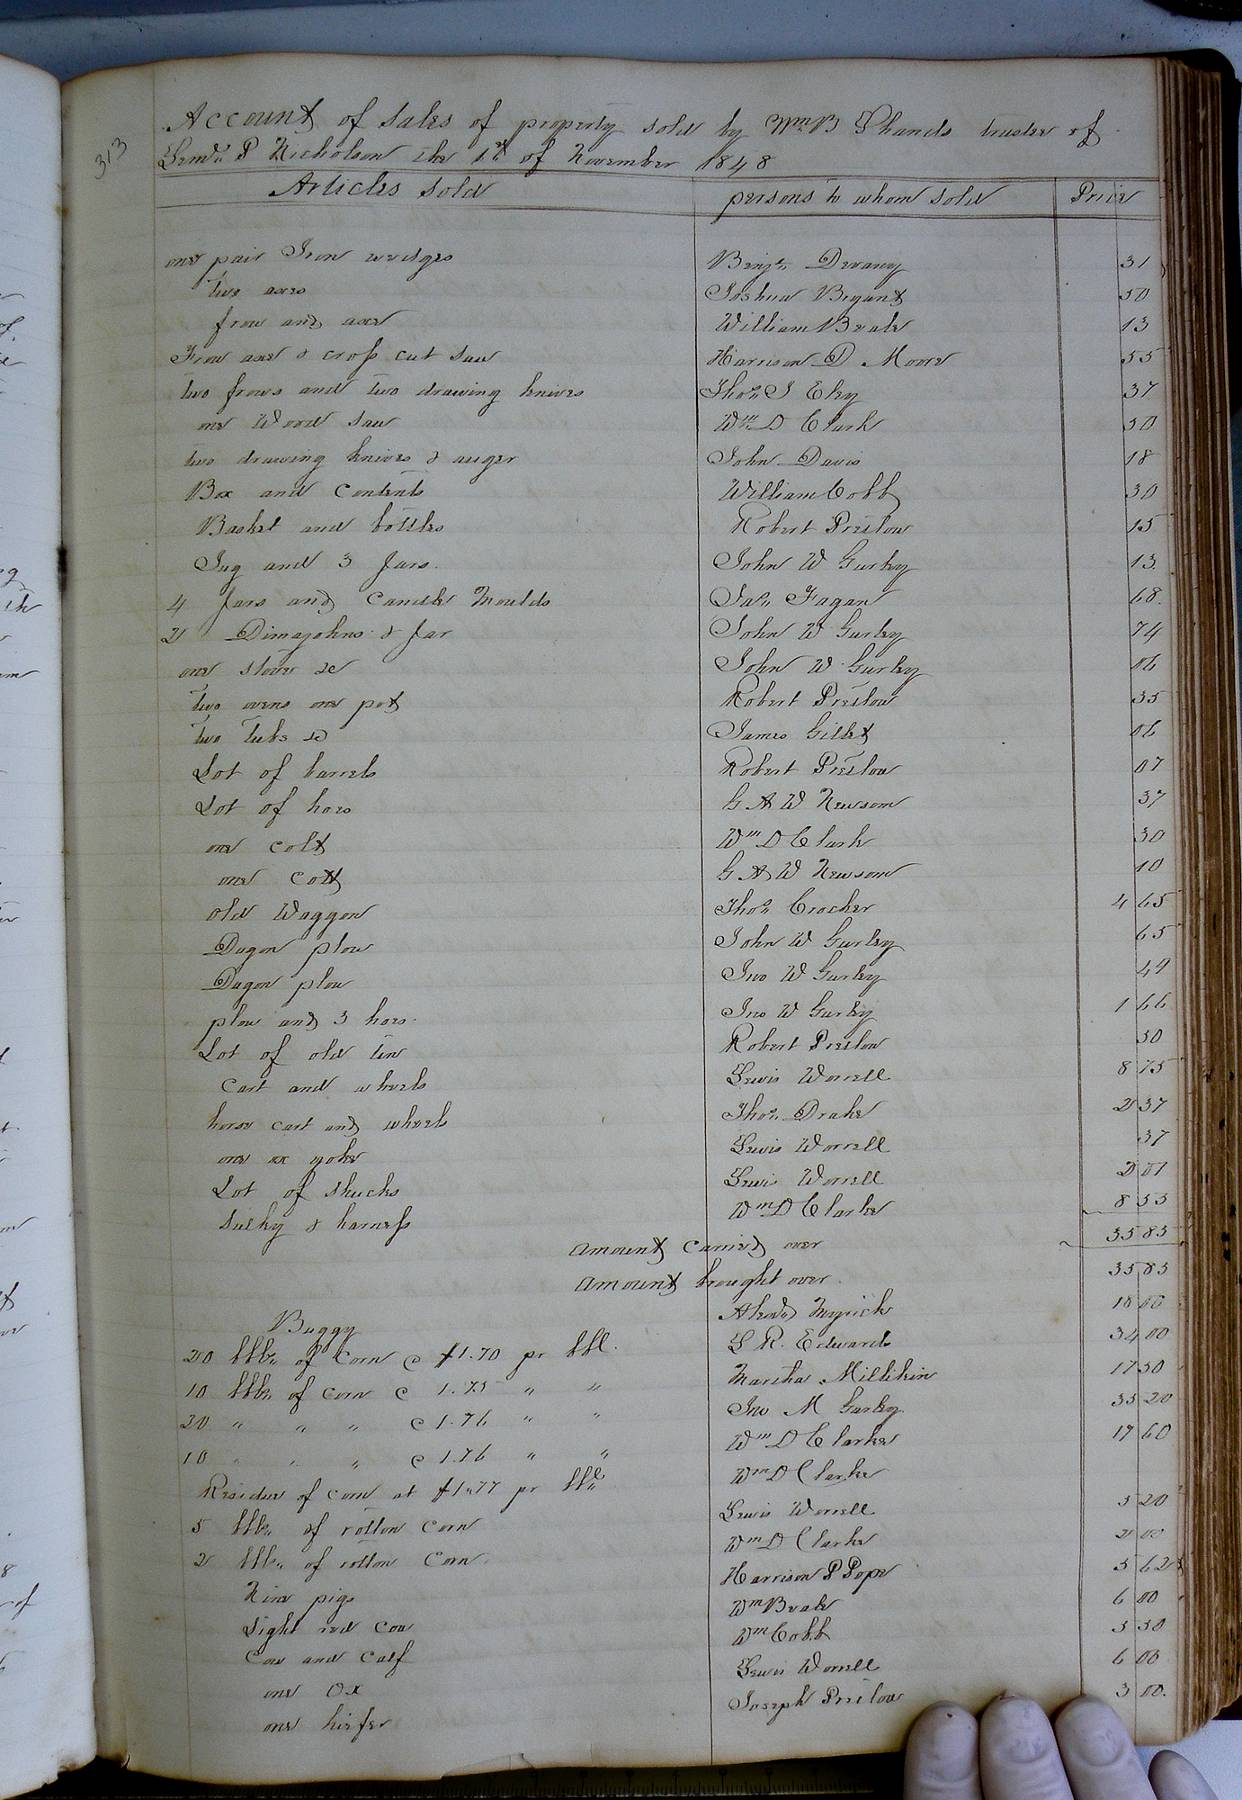 313
Account of sales of property sold by Wm B Shands trustee of
P Nicholson the 1st of November 1848
Articles sold persons to whom sold Price
one pair Iron wedges Benjn Devany 31
two axes Joshua Bryant 50
frow and axe William Beale 13
axe & cross cut saw Harrison D Moore 55
two frows and two drawing knives Thos J Eley 37
one Wood saw Wm D Clark 50
two drawing knives & auger John Davis 18
Box and Contents William Cobb 30
Basket and bottles Robert Preslow 15
Jug and 3 Jars. John W Gurley 13
4 Jars and Candle Moulds Jas Fagan 68
2 Dimajohns & Jar John W Gurley 74
one stove &c John W Gurley 06
two ovens one pot Robert Preslow 35
two Tubs &c James Gillet 06
Lot of barrels Robert Preslow 07
Lot of hoes G A W Newsom 37
one colt Wm D Clark 30
one G A W Newsom 10
old Waggon Thos Crocker 4 65
Dagon plow John W Gurley 65
Dagon plow Jno W Gurley 49
plow and 3 hoes Jno W Gurley 1 66
Lot of old tin Robert Preslow 50
Cart and wheels Lewis Worrell 8 75
horse cart and wheels Thos Drake 2 37
one ox yoke Lewis Worrell 37
Lot of shucks Lewis Worrell 2 01
Sulky & harness Wm D Clarke 8 55
amount carried over 35 85
amount brought over 35 85
Buggy Myrick 18 00
20 bbls of Corn @ $1.70 pr bbl. L R. Edwards 34 00
10 bbls of corn @ 1.75 " " Martha Millikin 17 50
20 " " " @ 1.76 " " Jno M Gurley 35 20
10 " " " @ 1.76 " " Wm D Clarke 17 60
Residue of corn at $1.77 pr bbl Wm D Clarke
5 bbls of rotton Corn Lewis Worrell 5 20
2 bbls of rotton Corn Wm D Clarke 2 00
Nine pigs Harrison P Pope 5 62
Light red Cow Wm Beale 6 00
Cow and Calf Wm Cobb 5 50
one Ox Lewis Worrell 6 00
one hiefer Joseph Preslow 3 00